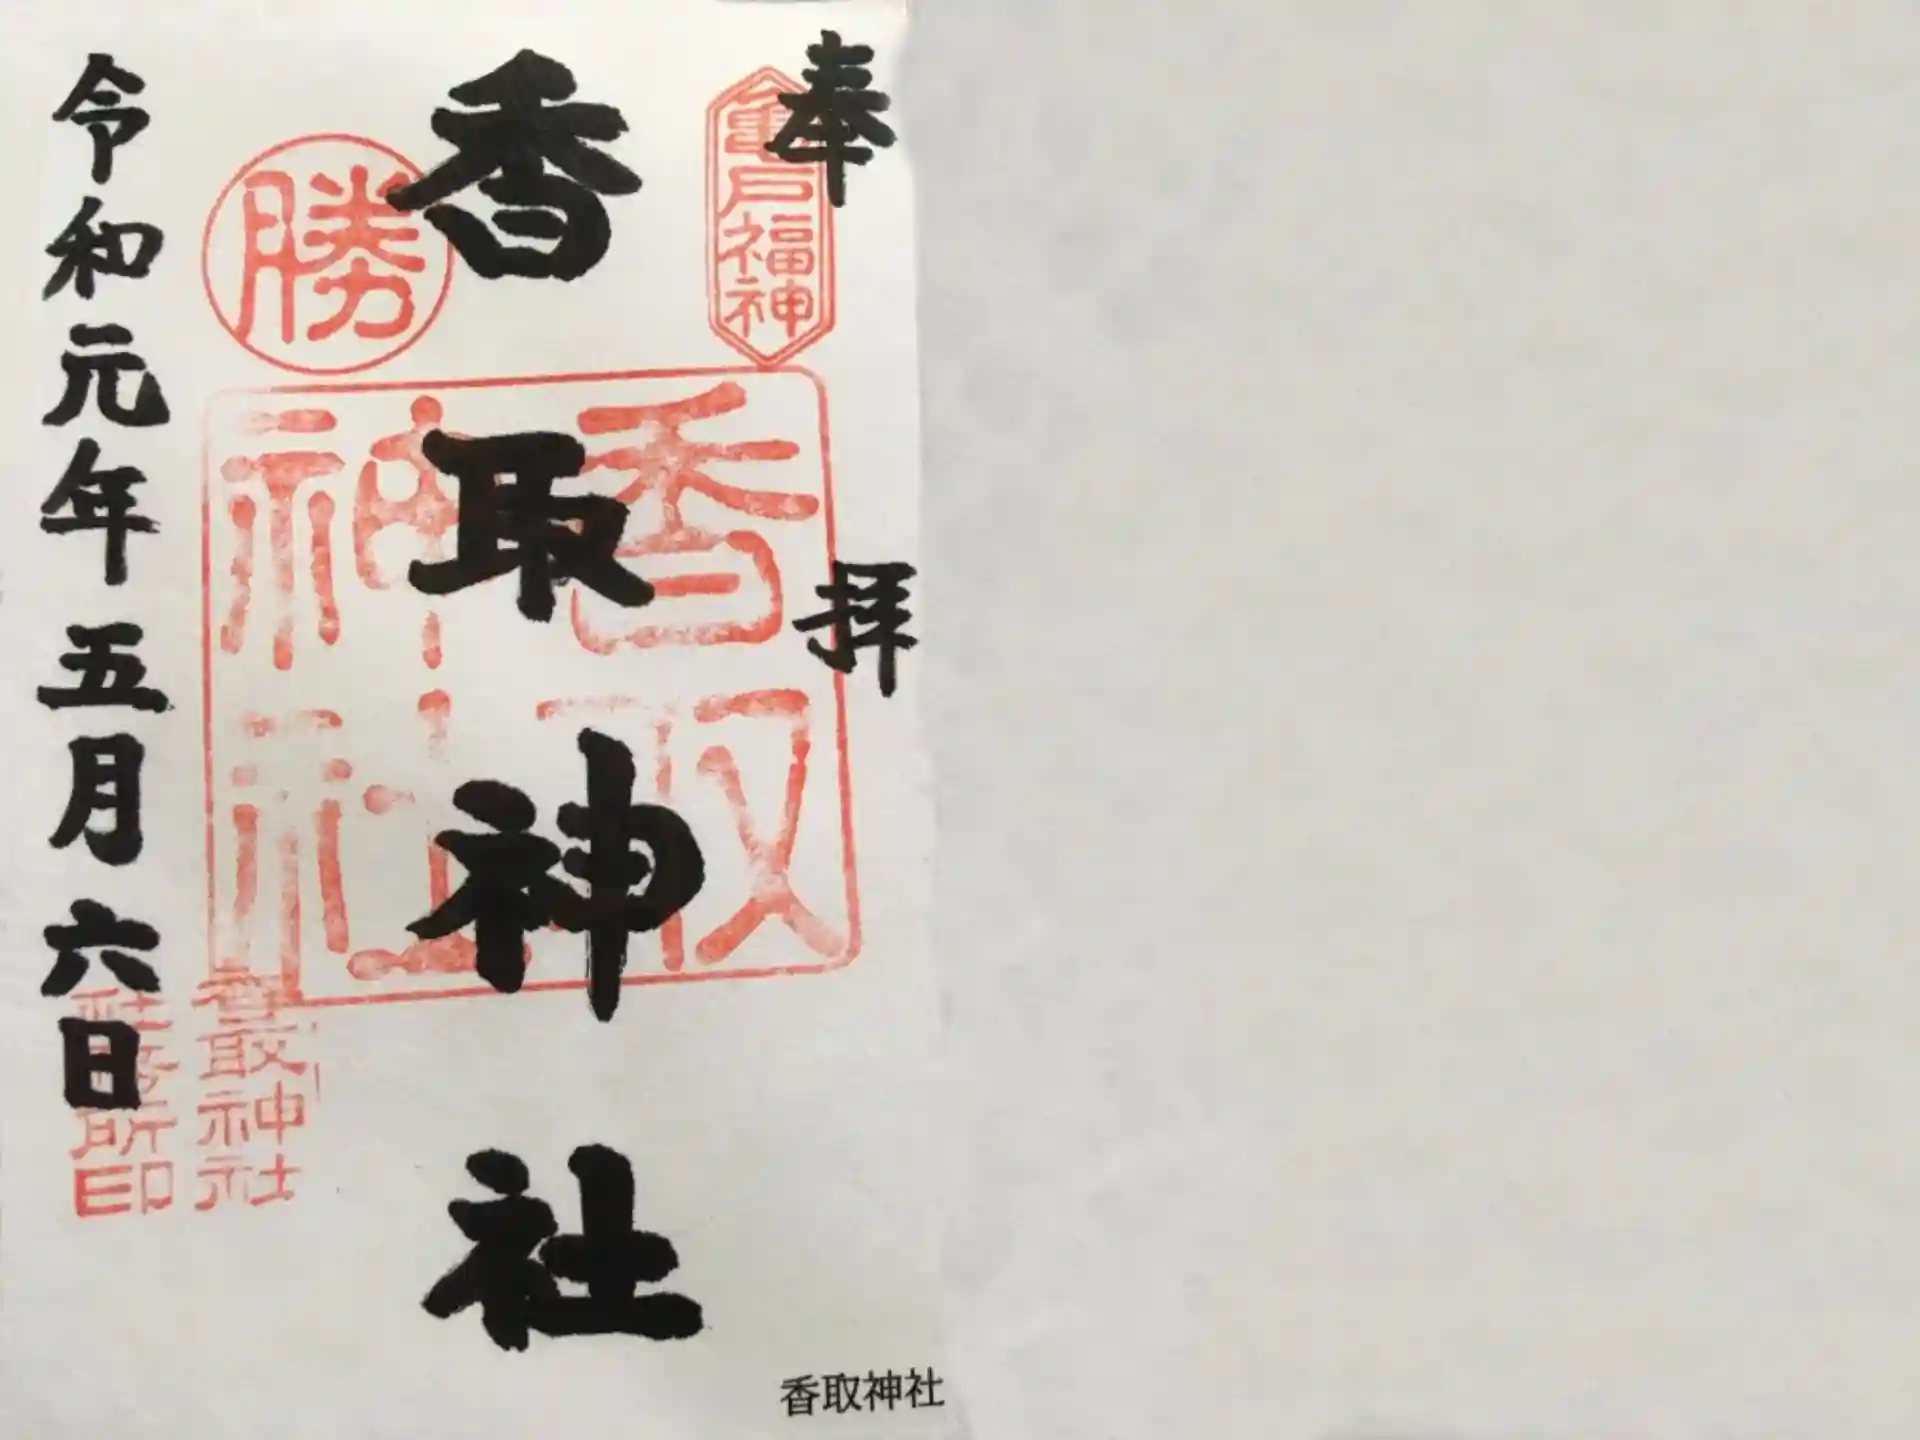 奉拝
亀戸福神
香取神社
香取
神社
勝
令和元年五月六日
香取神社
社務所印
香取神社